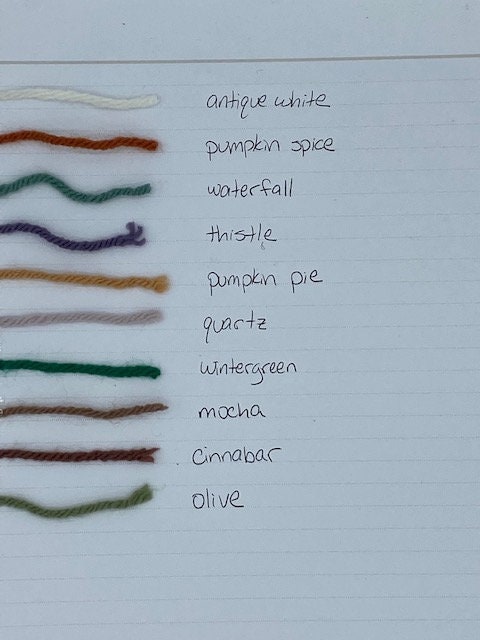 antique white
pumpkin spice
waterfall
thistle
pumpkin pie
quartz
wintergreen
mocha
cinnabar
olive